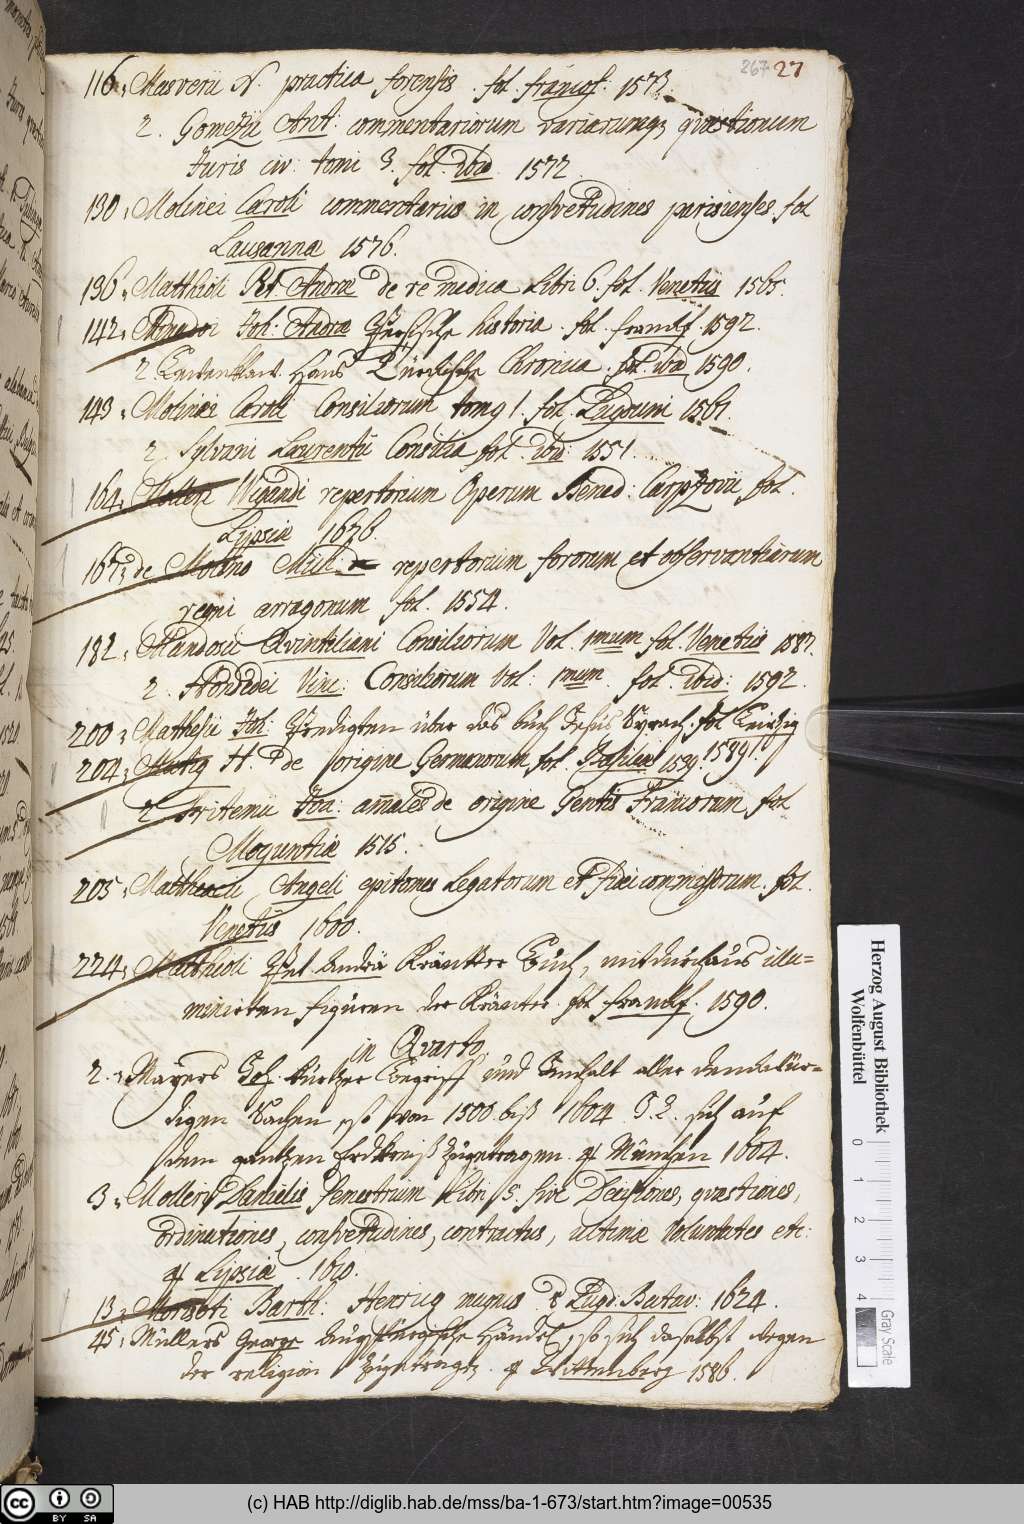 267 27
116. Masverii N. practica forensis. fol. francof. 1573.
2. Gomezii Ant: commentariorum variarumq3 quæstionum
Juris civ: tomi 3. fol. ibid. 1572
130. Molinei Caroli commentarius in consvetudines parisienses. fol
Lausanna 1576.
136. Matthioli Pet. Andræ de re medica libri 6. fol. Venetiis 1565.
142. Joh: Andræ Persische historia. fol. franckf. 1592.
2. Hans Türckische Chronica. fol. ibid 1590.
143. Molinæi Caroli Consiliorum tomg 1. fol. Lugduni 1561.
2. Sylvani Laurentii Consilia fol. ibid: 1551.
164. Molleri Wigandi repertorium Operum Bened: Carpzovii fol.
Lipsiæ 1676.
167. de Molino Mich. repertorium fororum et observantiarum
regni arragonum fol. 1554.
182. Mandosii Qvintiliani Consiliorum Vol. 1mum fol. Venetiis 1587.
2. Hondedei Vinc: Consiliorum Vol: 1mum. fol. ibid: 1592.
200. Mathesii Joh: Predigten über das buch Jesus Syrach. fol Leipzig
1589.
204. Mutig H. de origine Germanorum fol. Basileæ 1539.
2. Tritemii Joa: annales de origine Gentis Francorum fol
Moguntiæ 1515.
205. Matthæacii Angeli epitomes Legatorum et fideicommissorum. fol.
Venetiis 1600.
224. Matthioli Pet. Andrä Kräutter Buch, mit durchaus illu=
minirten figuren der Kräuter. fol franckf. 1590.
in Qvarto
2. Mayers Joh. kurtzer Begriff und Innhalt aller denckwür=
digen Sachen so von 1500. biß 1604 sich auf
dem gantzen Erdkreiß zugetragen. 4 München 1604.
3. Molleri Danielis semestrium libri 5. sive Decisiones, qvæstiones,
ordinationes, consvetudines, contractus, ultimæ voluntates etc:
4 Lipsiæ. 1610.
13. Morisoti Barth: Henricg magnus. 8 Lugd. Batav: 1624.
45. Müllers George Augspurgische Händel, so sich daselbst wegen
der religion zugetragen. 4 Wittenberg 1586.
Herzog August Bibliothek
Wolfenbüttel
0 1 2 3 4
Gray Scale
cc BY SA
(c) HAB http://diglib.hab.de/mss/ba-1-673/start.htm?image=00535